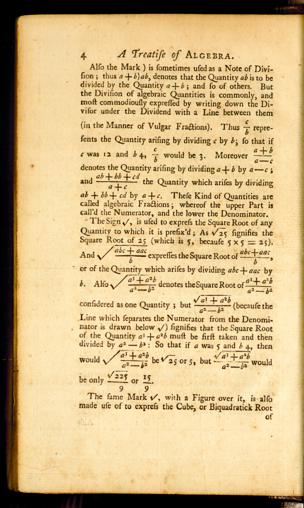 4 A Treatise of ALGEBRA.
Also the Mark ) is sometimes used as a Note of Divi-
sion; thus a + b) ab, denotes that the Quantity ab is to be
divided by the Quantity a + b; and so of others. But
the Division of algebraic Quantities is commonly, and
most commodiously expressed by writing down the Di-
visor under the Dividend with a Line between them
(in the Manner of Vulgar Fractions). Thus c/b repre-
sents the Quantity arising by dividing c by b; so that if
c was 12 and b 4, c/b would be 3. Moreover (a + b)/(a — c)
denotes the Quantity arising by dividing a + b by a — c;
and (ab + bb + cd)/(a + c) the Quantity which arises by dividing
ab + bb + cd by a + c. These Kind of Quantities are
called algebraic Fractions; whereof the upper Part is
call'd the Numerator, and the lower the Denominator.
The Sign √, is used to express the Square Root of any
Quantity to which it is prefix'd; As √25 signifies the
Square Root of 25 (which is 5, because 5 × 5 = 25).
And √(abc + aac)/b expresses the Square Root of (abc + aac)/b,
or of the Quantity which arises by dividing abc + aac by
b. Also √(a² + a²b)/(a² — b²) denotes the Square Root of (a² + a²b)/(a² — b²)
considered as one Quantity; but √(a² + a²b)/a² — b² (because the
Line which separates the Numerator from the Denomi-
nator is drawn below √) signifies that the Square Root
of the Quantity a² + a²b must be first taken and then
divided by a² — b²: So that if a was 5 and b 4, then
would √(a² + a²b)/(a² — b²) be √25 or 5, but √(a² + a²b)/a² — b² would
be only √225/9 or 15/9.
The same Mark √, with a Figure over it, is also
made use of to express the Cube, or Biquadratick Root
of